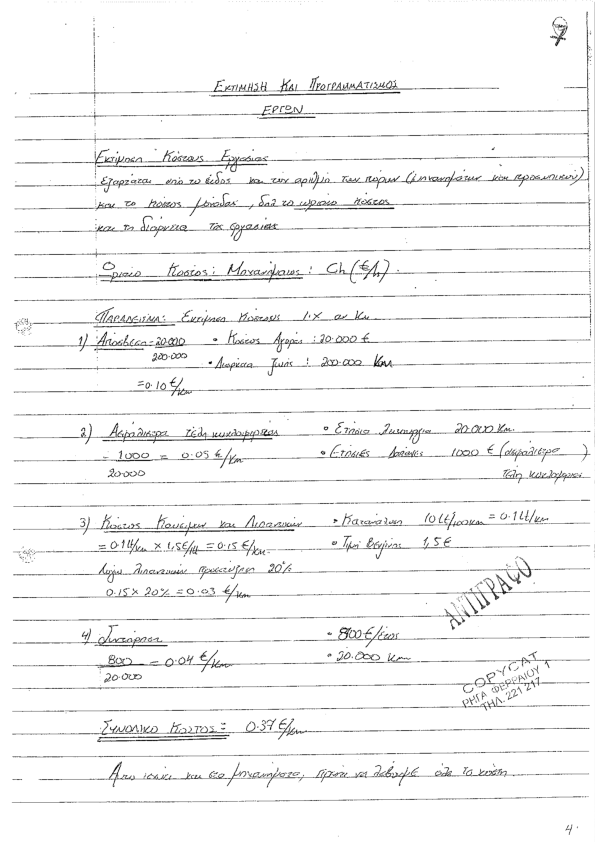 7
ΕΚΤΙΜΗΣΗ ΚΑΙ ΠΡΟΓΡΑΜΜΑΤΙΣΜΟΣ
ΕΡΓΩΝ
Εκτίμηση Κόστους Εργασίας
Εξαρτάται από το είδος και τον αριθμό των πόρων (μηχανημάτων και προσωπικού)
και το κόστος μονάδας, δηλ το ωριαίο κόστος
και τη διάρκεια της εργασίας
Ωριαίο Κόστος: Μηχανήματος: Ch (€/h).
ΠΑΡΑΔΕΙΓΜΑ: Εκτίμηση Κόστους Ι.Χ αν Km
1) Απόσβεση = 20.000 • Κόστος Αγοράς : 20.000 €
200.000 • Διάρκεια ζωής : 200.000 Km
= 0.10 €/km
2) Ασφάλιστρα τέλη κυκλοφορίας • Ετήσια λειτουργία 20.000 Km.
1000 = 0.05 €/km • Ετήσιες Δαπάνες 1000 € (ασφάλιστρα )
20.000 τέλη κυκλοφορίας
3) Κόστος Καυσίμων και Λιπαντικών • Κατανάλωση 10 lt/100km = 0.1 lt/km
= 0.1 lt/km × 1,5 €/lt = 0.15 €/km • Τιμή Βενζίνης 1,5 €
Λόγω λιπαντικών προσαύξηση 20%
0.15 × 20% = 0.03 €/km
ΑΝΤΙΓΡΑΦΟ
4) Συντήρηση • 800 €/έτος
800 = 0.04 €/km • 20.000 km
20.000
COPYCAT
ΡΗΓΑ ΦΕΡΡΑΙΟΥ 1
ΤΗΛ. 221 217
ΣΥΝΟΛΙΚΟ ΚΟΣΤΟΣ = 0.37 €/km
και στα μηχανήματα, πρέπει να λάβουμε όλα τα κόστη
4.